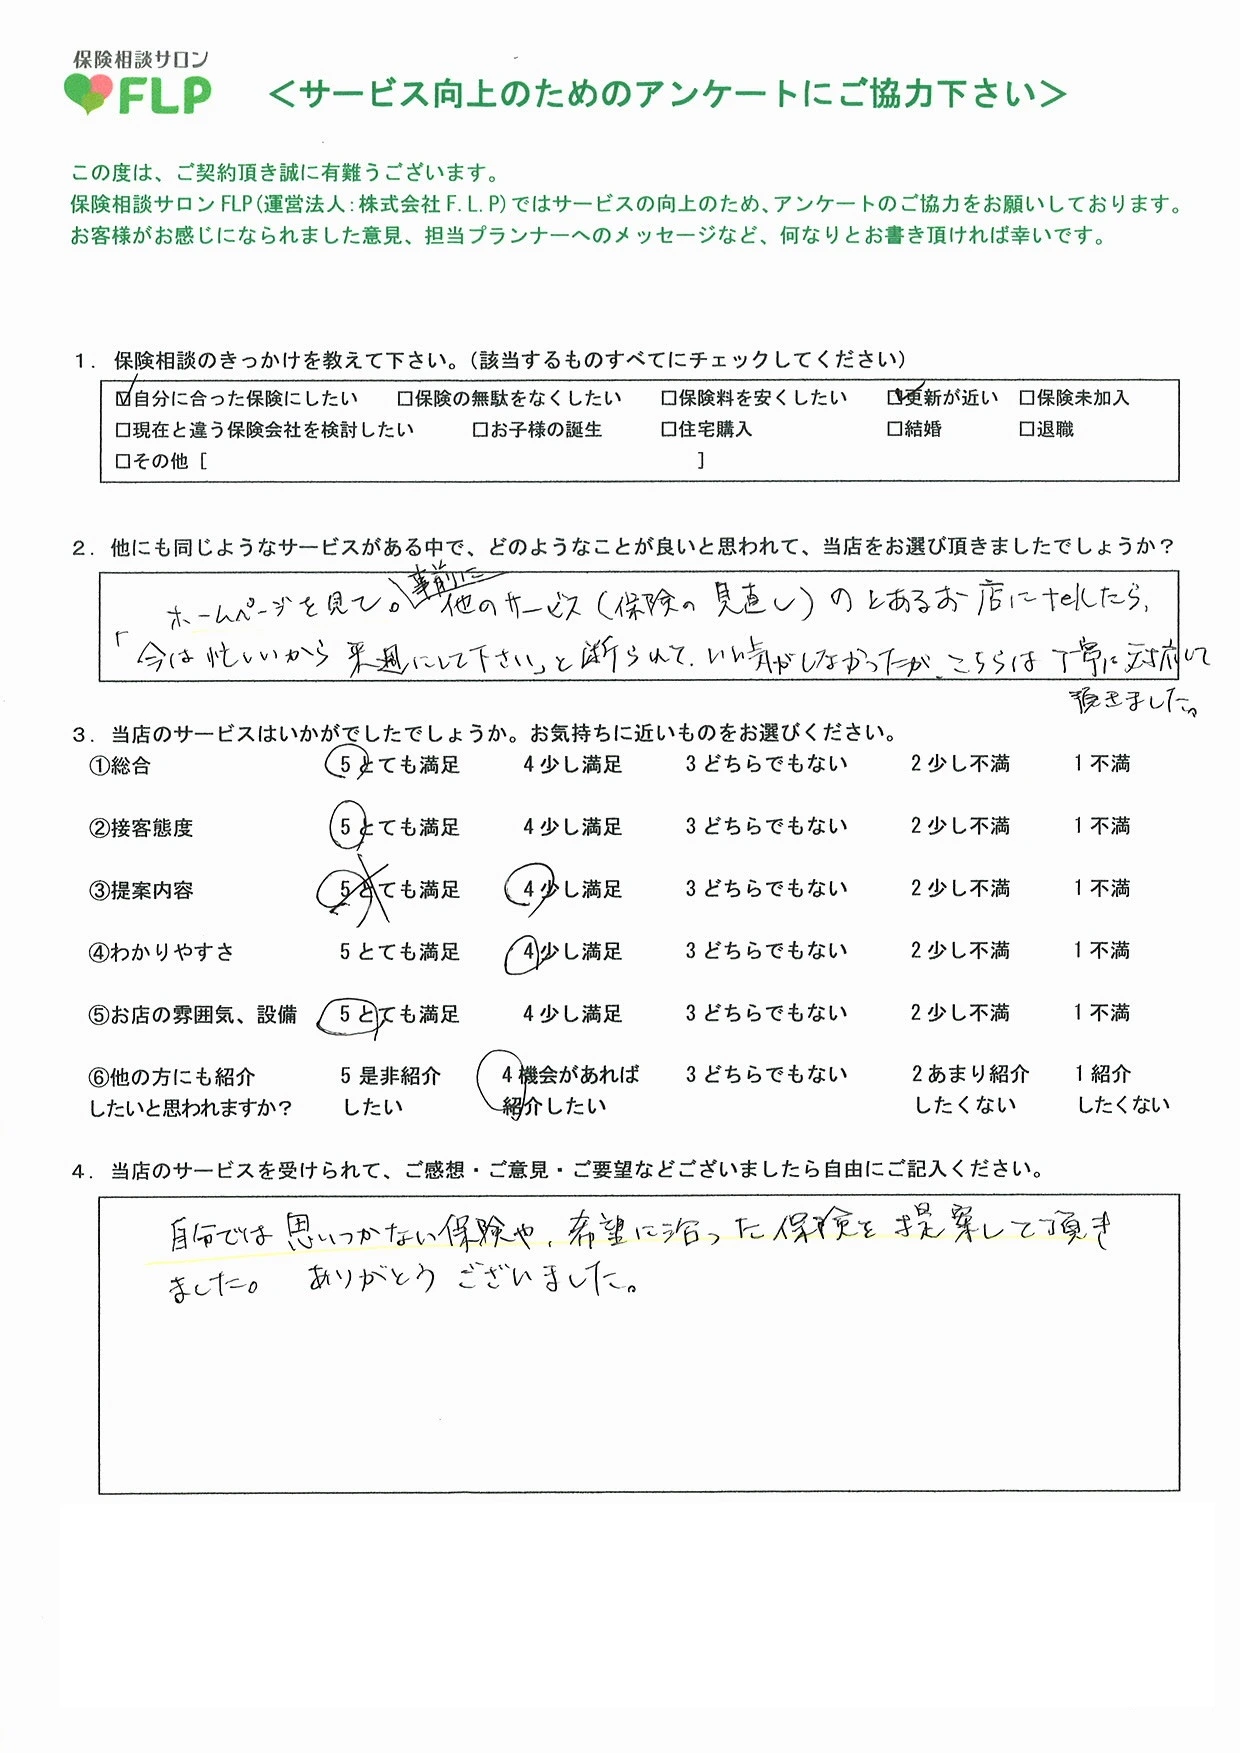 保険相談サロン
FLP
＜サービス向上のためのアンケートにご協力下さい＞
この度は、ご契約頂き誠に有難うございます。
保険相談サロンFLP(運営法人:株式会社F.L.P)ではサービスの向上のため、アンケートのご協力をお願いしております。
お客様がお感じになられました意見、担当プランナーへのメッセージなど、何なりとお書き頂ければ幸いです。
1. 保険相談のきっかけを教えて下さい。(該当するものすべてにチェックしてください)
☑自分に合った保険にしたい □保険の無駄をなくしたい □保険料を安くしたい ☑更新が近い □保険未加入
□現在と違う保険会社を検討したい □お子様の誕生 □住宅購入 □結婚 □退職
□その他 [ ]
2. 他にも同じようなサービスがある中で、どのようなことが良いと思われて、当店をお選び頂きましたでしょうか?
ホームページを見て。事前に他のサービス(保険の見直し)のとあるお店にtelしたら、
「今は忙しいから来週にして下さい」と断られて、いい気がしなかったが、こちらは丁寧に対応して
頂きました。
3. 当店のサービスはいかがでしたでしょうか。お気持ちに近いものをお選びください。
①総合 5とても満足 4少し満足 3どちらでもない 2少し不満 1不満
②接客態度 5とても満足 4少し満足 3どちらでもない 2少し不満 1不満
③提案内容 5とても満足 4少し満足 3どちらでもない 2少し不満 1不満
④わかりやすさ 5とても満足 4少し満足 3どちらでもない 2少し不満 1不満
⑤お店の雰囲気、設備 5とても満足 4少し満足 3どちらでもない 2少し不満 1不満
⑥他の方にも紹介 5是非紹介 4機会があれば 3どちらでもない 2あまり紹介 1紹介
したいと思われますか? したい 紹介したい したくない したくない
4. 当店のサービスを受けられて、ご感想・ご意見・ご要望などございましたら自由にご記入ください。
自分では思いつかない保険や、希望に沿った保険を提案して頂き
ました。 ありがとうございました。